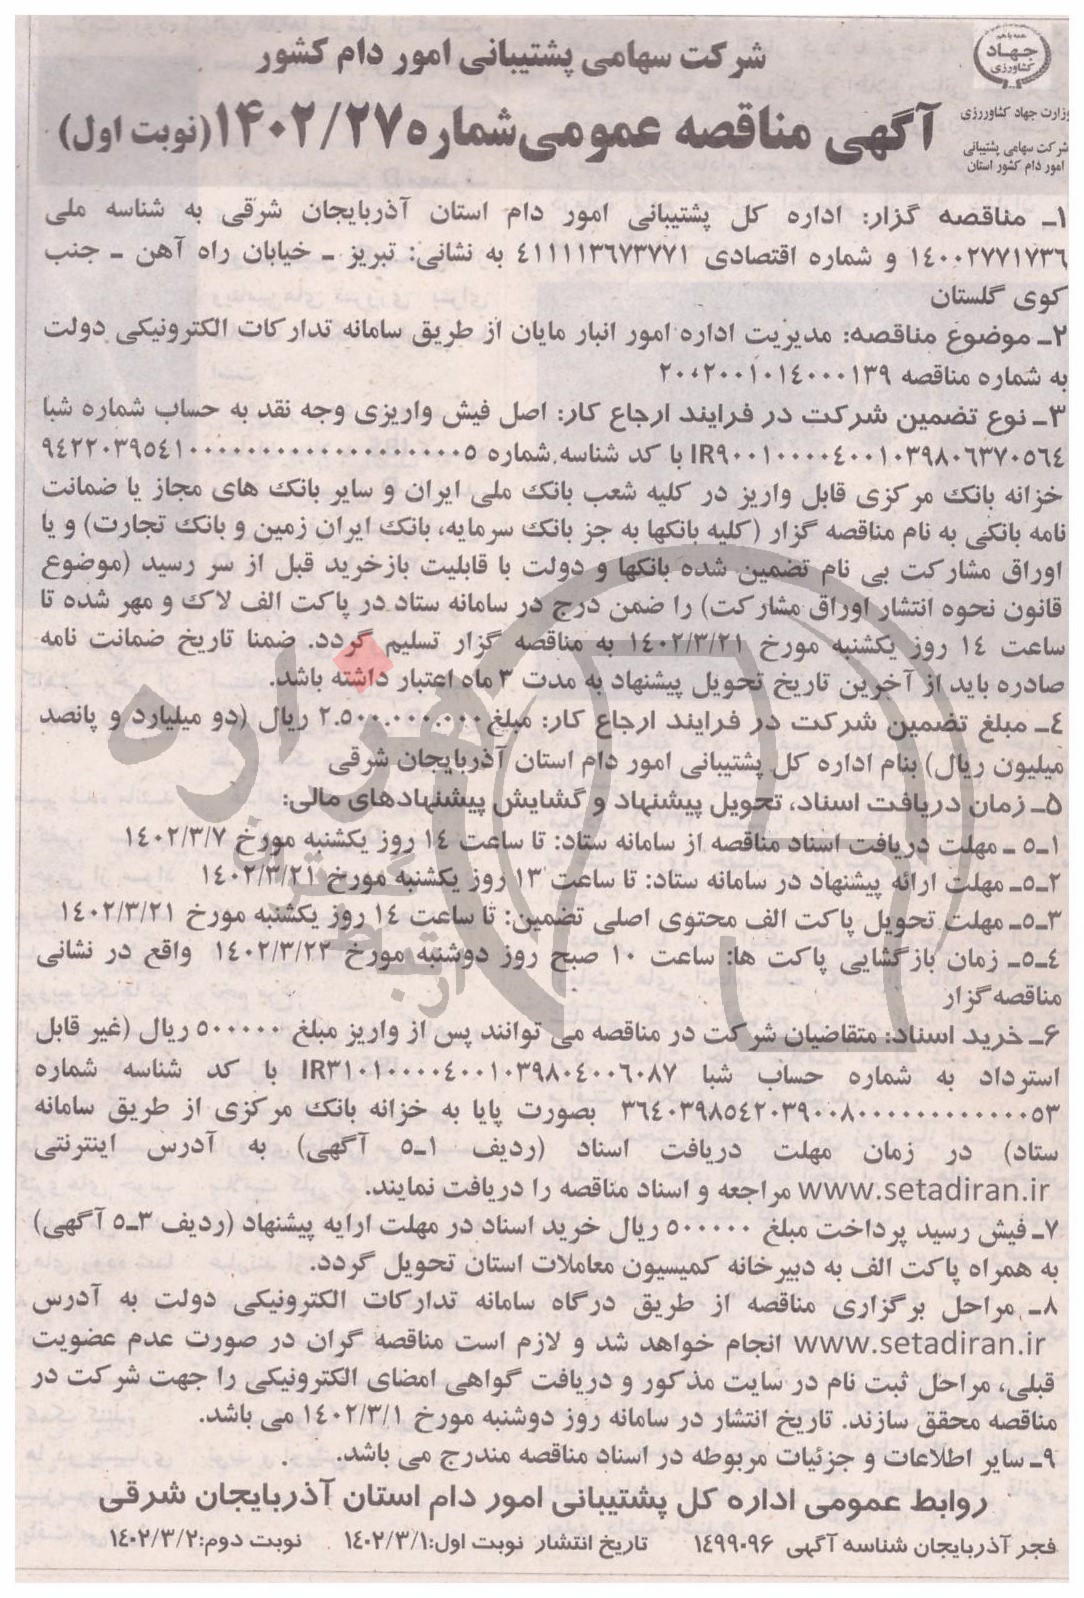 جهاد
کشاورزی
وزارت جهاد کشاورزی
شرکت سهامی پشتیبانی
امور دام کشور استان
شرکت سهامی پشتیبانی امور دام کشور
آگهی مناقصه عمومی شماره ۱۴۰۲/۲۷ (نوبت اول)
۱ـ مناقصه گزار: اداره کل پشتیبانی امور دام استان آذربایجان شرقی به شناسه ملی
۱۴۰۰۲۷۷۱۷۳۶ و شماره اقتصادی ۴۱۱۱۱۳۶۷۳۷۷۱ به نشانی: تبریز ـ خیابان راه آهن ـ جنب
کوی گلستان
۲ـ موضوع مناقصه: مدیریت اداره امور انبار مایان از طریق سامانه تدارکات الکترونیکی دولت
به شماره مناقصه ۲۰۰۲۰۰۱۰۱۴۰۰۰۱۳۹
۳ـ نوع تضمین شرکت در فرایند ارجاع کار: اصل فیش واریزی وجه نقد به حساب شماره شبا
IR۹۰۰۱۰۰۰۰۴۰۰۱۰۳۹۸۰۶۳۷۰۵۶۴ با کد شناسه شماره
خزانه بانک مرکزی قابل واریز در کلیه شعب بانک ملی ایران و سایر بانک های مجاز یا ضمانت
نامه بانکی به نام مناقصه گزار (کلیه بانکها به جز بانک سرمایه، بانک ایران زمین و بانک تجارت) و یا
اوراق مشارکت بی نام تضمین شده بانکها و دولت با قابلیت بازخرید قبل از سر رسید (موضوع
قانون نحوه انتشار اوراق مشارکت) را ضمن درج در سامانه ستاد در پاکت الف لاک و مهر شده تا
ساعت ۱۴ روز یکشنبه مورخ ۱۴۰۲/۳/۲۱ به مناقصه گزار تسلیم گردد. ضمنا تاریخ ضمانت نامه
صادره باید از آخرین تاریخ تحویل پیشنهاد به مدت ۳ ماه اعتبار داشته باشد.
۴ـ مبلغ تضمین شرکت در فرایند ارجاع کار: مبلغ ۲.۵۰۰.۰۰۰.۰۰۰ ریال (دو میلیارد و پانصد
میلیون ریال) بنام اداره کل پشتیبانی امور دام استان آذربایجان شرقی
۵ـ زمان دریافت اسناد، تحویل پیشنهاد و گشایش پیشنهادهای مالی:
۱ـ۵ ـ مهلت دریافت اسناد مناقصه از سامانه ستاد: تا ساعت ۱۴ روز یکشنبه مورخ ۱۴۰۲/۳/۷
۲ـ۵ـ مهلت ارائه پیشنهاد در سامانه ستاد: تا ساعت ۱۳ روز یکشنبه مورخ ۱۴۰۲/۳/۲۱
۳ـ۵ـ مهلت تحویل پاکت الف محتوی اصلی تضمین: تا ساعت ۱۴ روز یکشنبه مورخ ۱۴۰۲/۳/۲۱
۴ـ۵ـ زمان بازگشایی پاکت ها: ساعت ۱۰ صبح روز دوشنبه مورخ ۱۴۰۲/۳/۲۲ واقع در نشانی
مناقصه گزار
۶ـ خرید اسناد: متقاضیان شرکت در مناقصه می توانند پس از واریز مبلغ ۵۰۰۰۰۰ ریال (غیر قابل
استرداد به شماره حساب شبا IR۳۱۰۱۰۰۰۰۴۰۰۱۰۳۹۸۰۴۰۰۶۰۸۷ با کد شناسه شماره
۳۶۴۰۳۹۸۵۴۲۰۳۹۰۰۸۰۰۰۰۰۰۰۰۰۰۰۰۰۵۳ بصورت پایا به خزانه بانک مرکزی از طریق سامانه
ستاد) در زمان مهلت دریافت اسناد (ردیف ۱ـ۵ آگهی) به آدرس اینترنتی
www.setadiran.ir مراجعه و اسناد مناقصه را دریافت نمایند.
۷ـ فیش رسید پرداخت مبلغ ۵۰۰۰۰۰ ریال خرید اسناد در مهلت ارایه پیشنهاد (ردیف ۳ـ۵ آگهی)
به همراه پاکت الف به دبیرخانه کمیسیون معاملات استان تحویل گردد.
۸ـ مراحل برگزاری مناقصه از طریق درگاه سامانه تدارکات الکترونیکی دولت به آدرس
www.setadiran.ir انجام خواهد شد و لازم است مناقصه گران در صورت عدم عضویت
قبلی، مراحل ثبت نام در سایت مذکور و دریافت گواهی امضای الکترونیکی را جهت شرکت در
مناقصه محقق سازند. تاریخ انتشار در سامانه روز دوشنبه مورخ ۱۴۰۲/۳/۱ می باشد.
۹ـ سایر اطلاعات و جزئیات مربوطه در اسناد مناقصه مندرج می باشد.
روابط عمومی اداره کل پشتیبانی امور دام استان آذربایجان شرقی
فجر آذربایجان شناسه آگهی ۱۴۹۹۰۹۶ تاریخ انتشار نوبت اول: ۱۴۰۲/۳/۱ نوبت دوم: ۱۴۰۲/۳/۲
هزاره